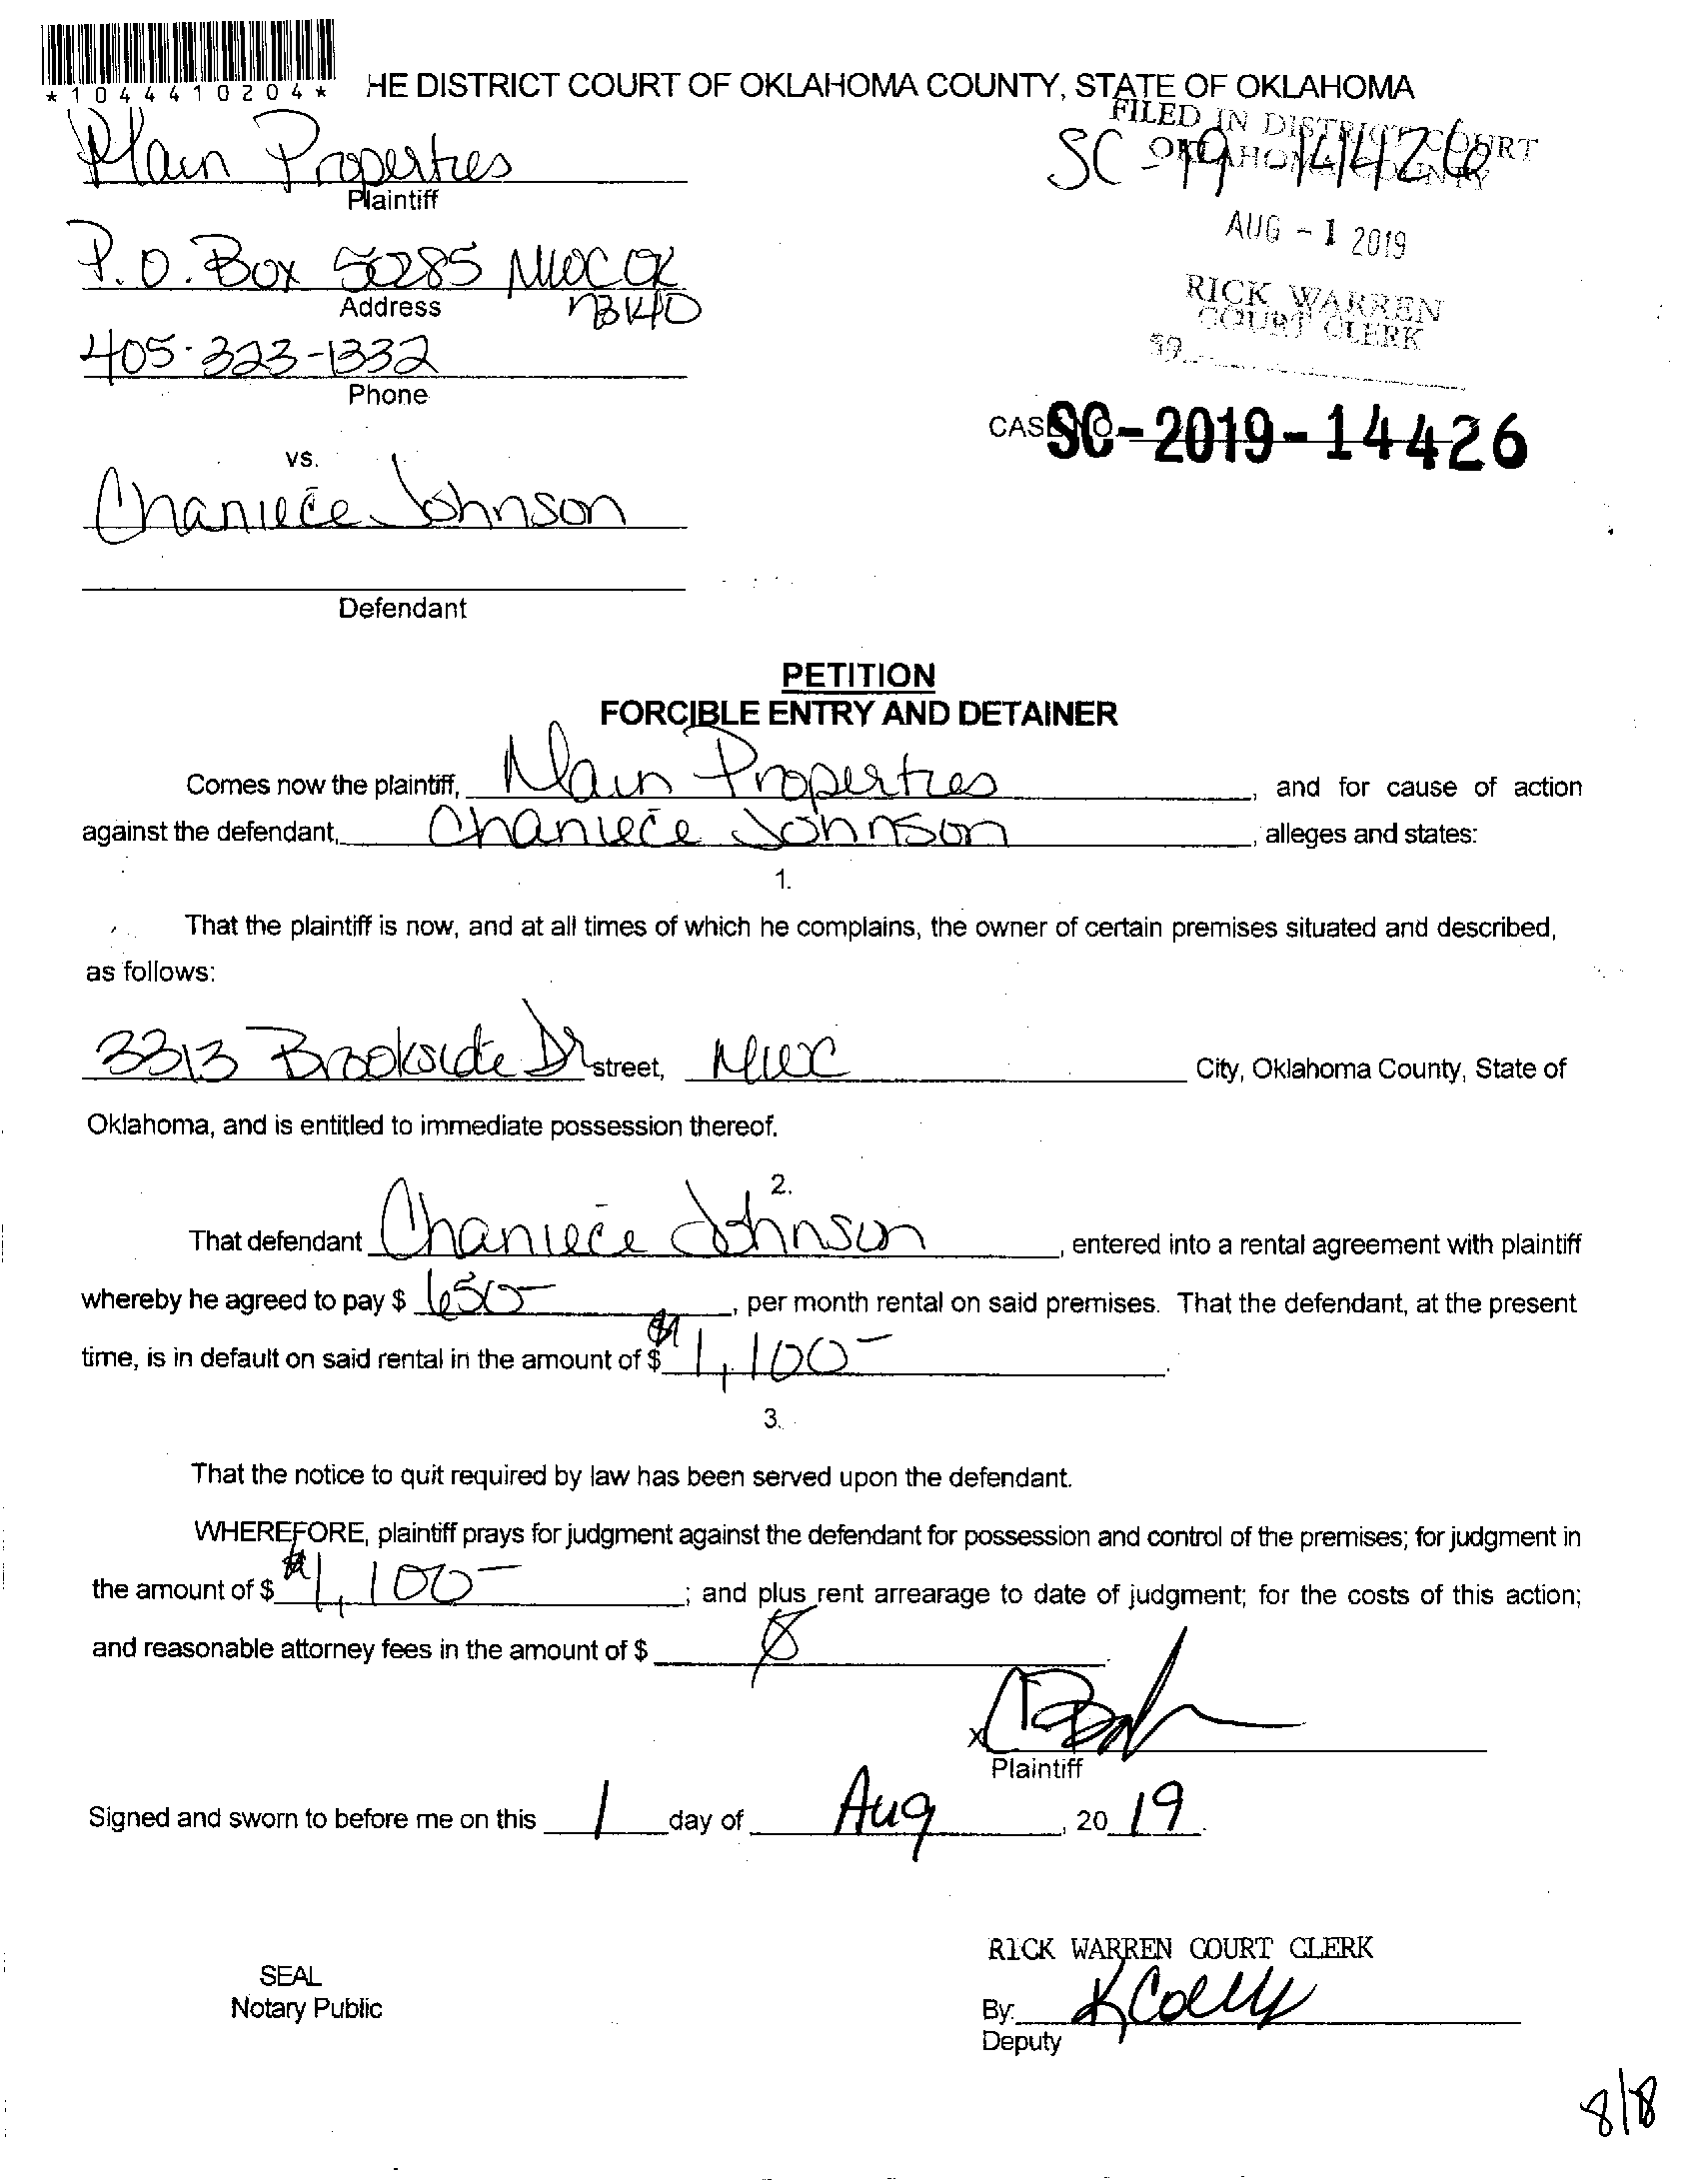 *1044410204*
HE DISTRICT COURT OF OKLAHOMA COUNTY, STATE OF OKLAHOMA
FILED IN DISTRICT COURT
OKLAHOMA COUNTY
SC-19 14426
Main Properties
Plaintiff
AUG - 1 2019
P.O. Box 50285 MWC OK
Address
73140
RICK WARREN
COURT CLERK
405-323-1332
Phone
39
CASE NO. SC-2019-14426
vs.
Chaniece Johnson
Defendant
PETITION
FORCIBLE ENTRY AND DETAINER
Comes now the plaintiff, Main Properties, and for cause of action
against the defendant, Chaniece Johnson, alleges and states:
1.
That the plaintiff is now, and at all times of which he complains, the owner of certain premises situated and described,
as follows:
3313 Brookside Dr street, MWC City, Oklahoma County, State of
Oklahoma, and is entitled to immediate possession thereof.
2.
That defendant Chaniece Johnson, entered into a rental agreement with plaintiff
whereby he agreed to pay $ 650-, per month rental on said premises. That the defendant, at the present
time, is in default on said rental in the amount of $ $1,100-.
3.
That the notice to quit required by law has been served upon the defendant.
WHEREFORE, plaintiff prays for judgment against the defendant for possession and control of the premises; for judgment in
the amount of $ $1,100-; and plus rent arrearage to date of judgment; for the costs of this action;
and reasonable attorney fees in the amount of $ Ø
X
Plaintiff
Signed and sworn to before me on this 1 day of Aug, 20 19.
RICK WARREN COURT CLERK
SEAL
Notary Public
By:
Deputy
8/8